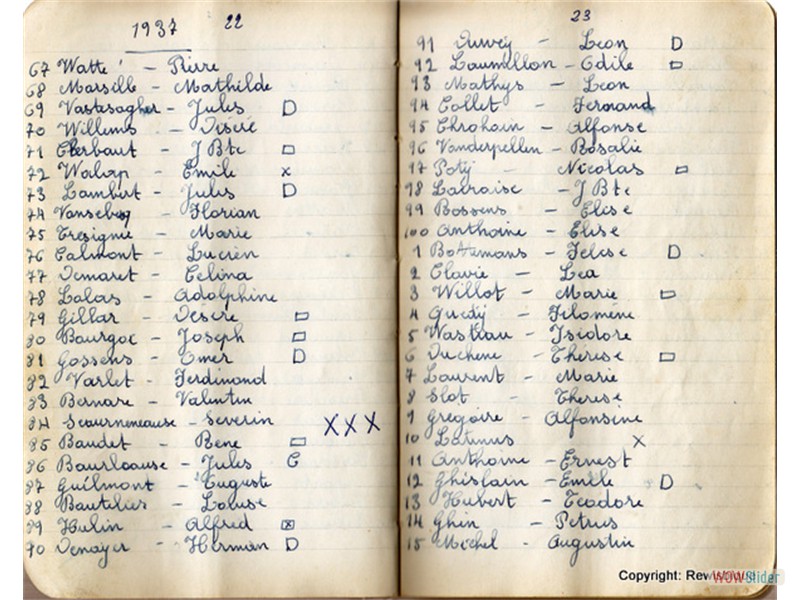 1937 22
67 Watté - Pierre
68 Marsille - Mathilde
69 Vastesagher - Jules D
70 Willems - Désiré
71 Clerbaut - J Bte
72 Walop - Emile x
73 Lambert - Jules D
74 Vanseben - Florian
75 Tresignie - Marie
76 Calmont - Lucien
77 Demaret - Celina
78 Lalas - Adolphine
79 Gillar - Desire
80 Bourgoc - Joseph
81 Gossens - Omer D
82 Varlet - Ferdinand
83 Bernare - Valentin
84 - Severin XXX
85 Baudet - Bene
86 - Jules C
87 Guilmont - Euguste
88 Bautelier - Louise
89 Hulin - Alfred
90 Denayer - Herman D
23
91 - Leon D
92 Laumillon - Odile
93 Mathys - Leon
94 Collet - Fernand
95 - Alfonse
96 Vanderpellen - Rosalie
97 Poty - Nicolas
98 Labraise - J Bte
99 Bossens - Elise
100 Anthoine - Elise
1 Bottemans - Felese D
2 Clavie - Lea
3 Willot - Marie
4 Guedy - Filomène
5 Wastiau - Isidore
6 Duchene - Therese
7 Laurent - Marie
8 Slot - Therese
9 Gregoire - Alfonsine
10 Latinus x
11 Anthoine - Ernest
12 Ghislain - Emile D
13 Hubert - Teodore
14 Ghin - Petrus
15 Michel - Augustin
Copyright:
WOWSlider